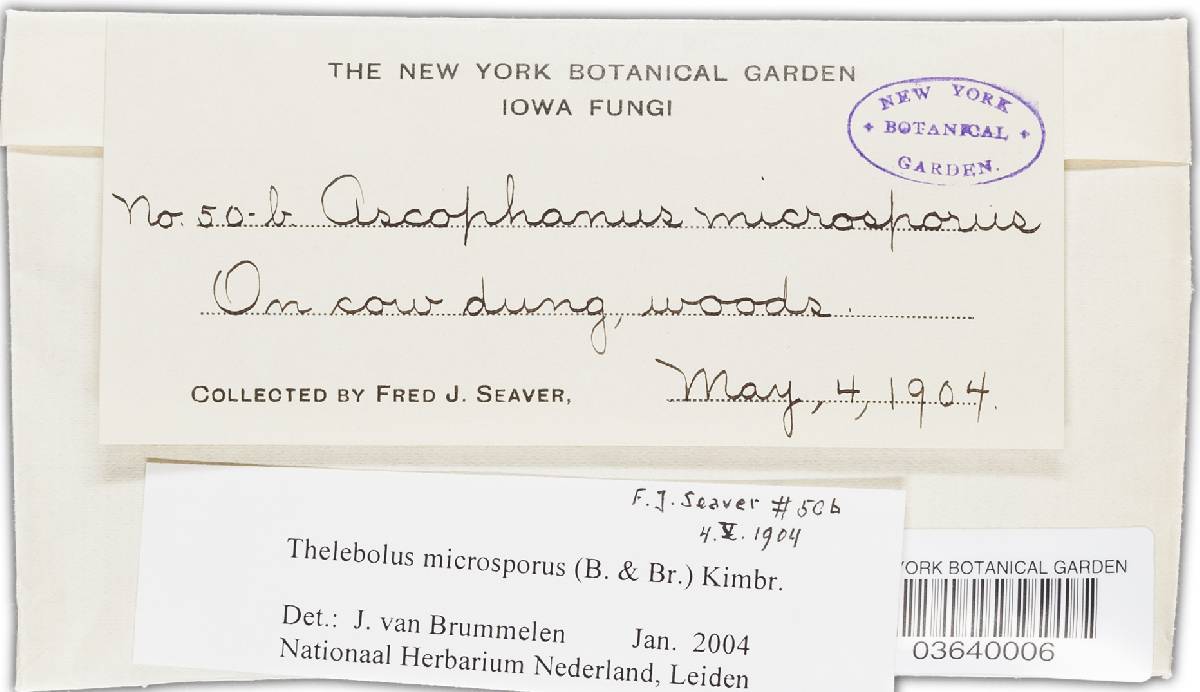 THE NEW YORK BOTANICAL GARDEN
IOWA FUNGI
NEW YORK
BOTANICAL
GARDEN.
No. 50-b. Ascophanus microsporus
On cow dung, woods.
COLLECTED BY FRED J. SEAVER, May, 4, 1904.
F. J. Seaver # 50b
4.V.1904
Thelebolus microsporus (B. & Br.) Kimbr.
Det.: J. van Brummelen Jan. 2004
Nationaal Herbarium Nederland, Leiden
YORK BOTANICAL GARDEN
03640006